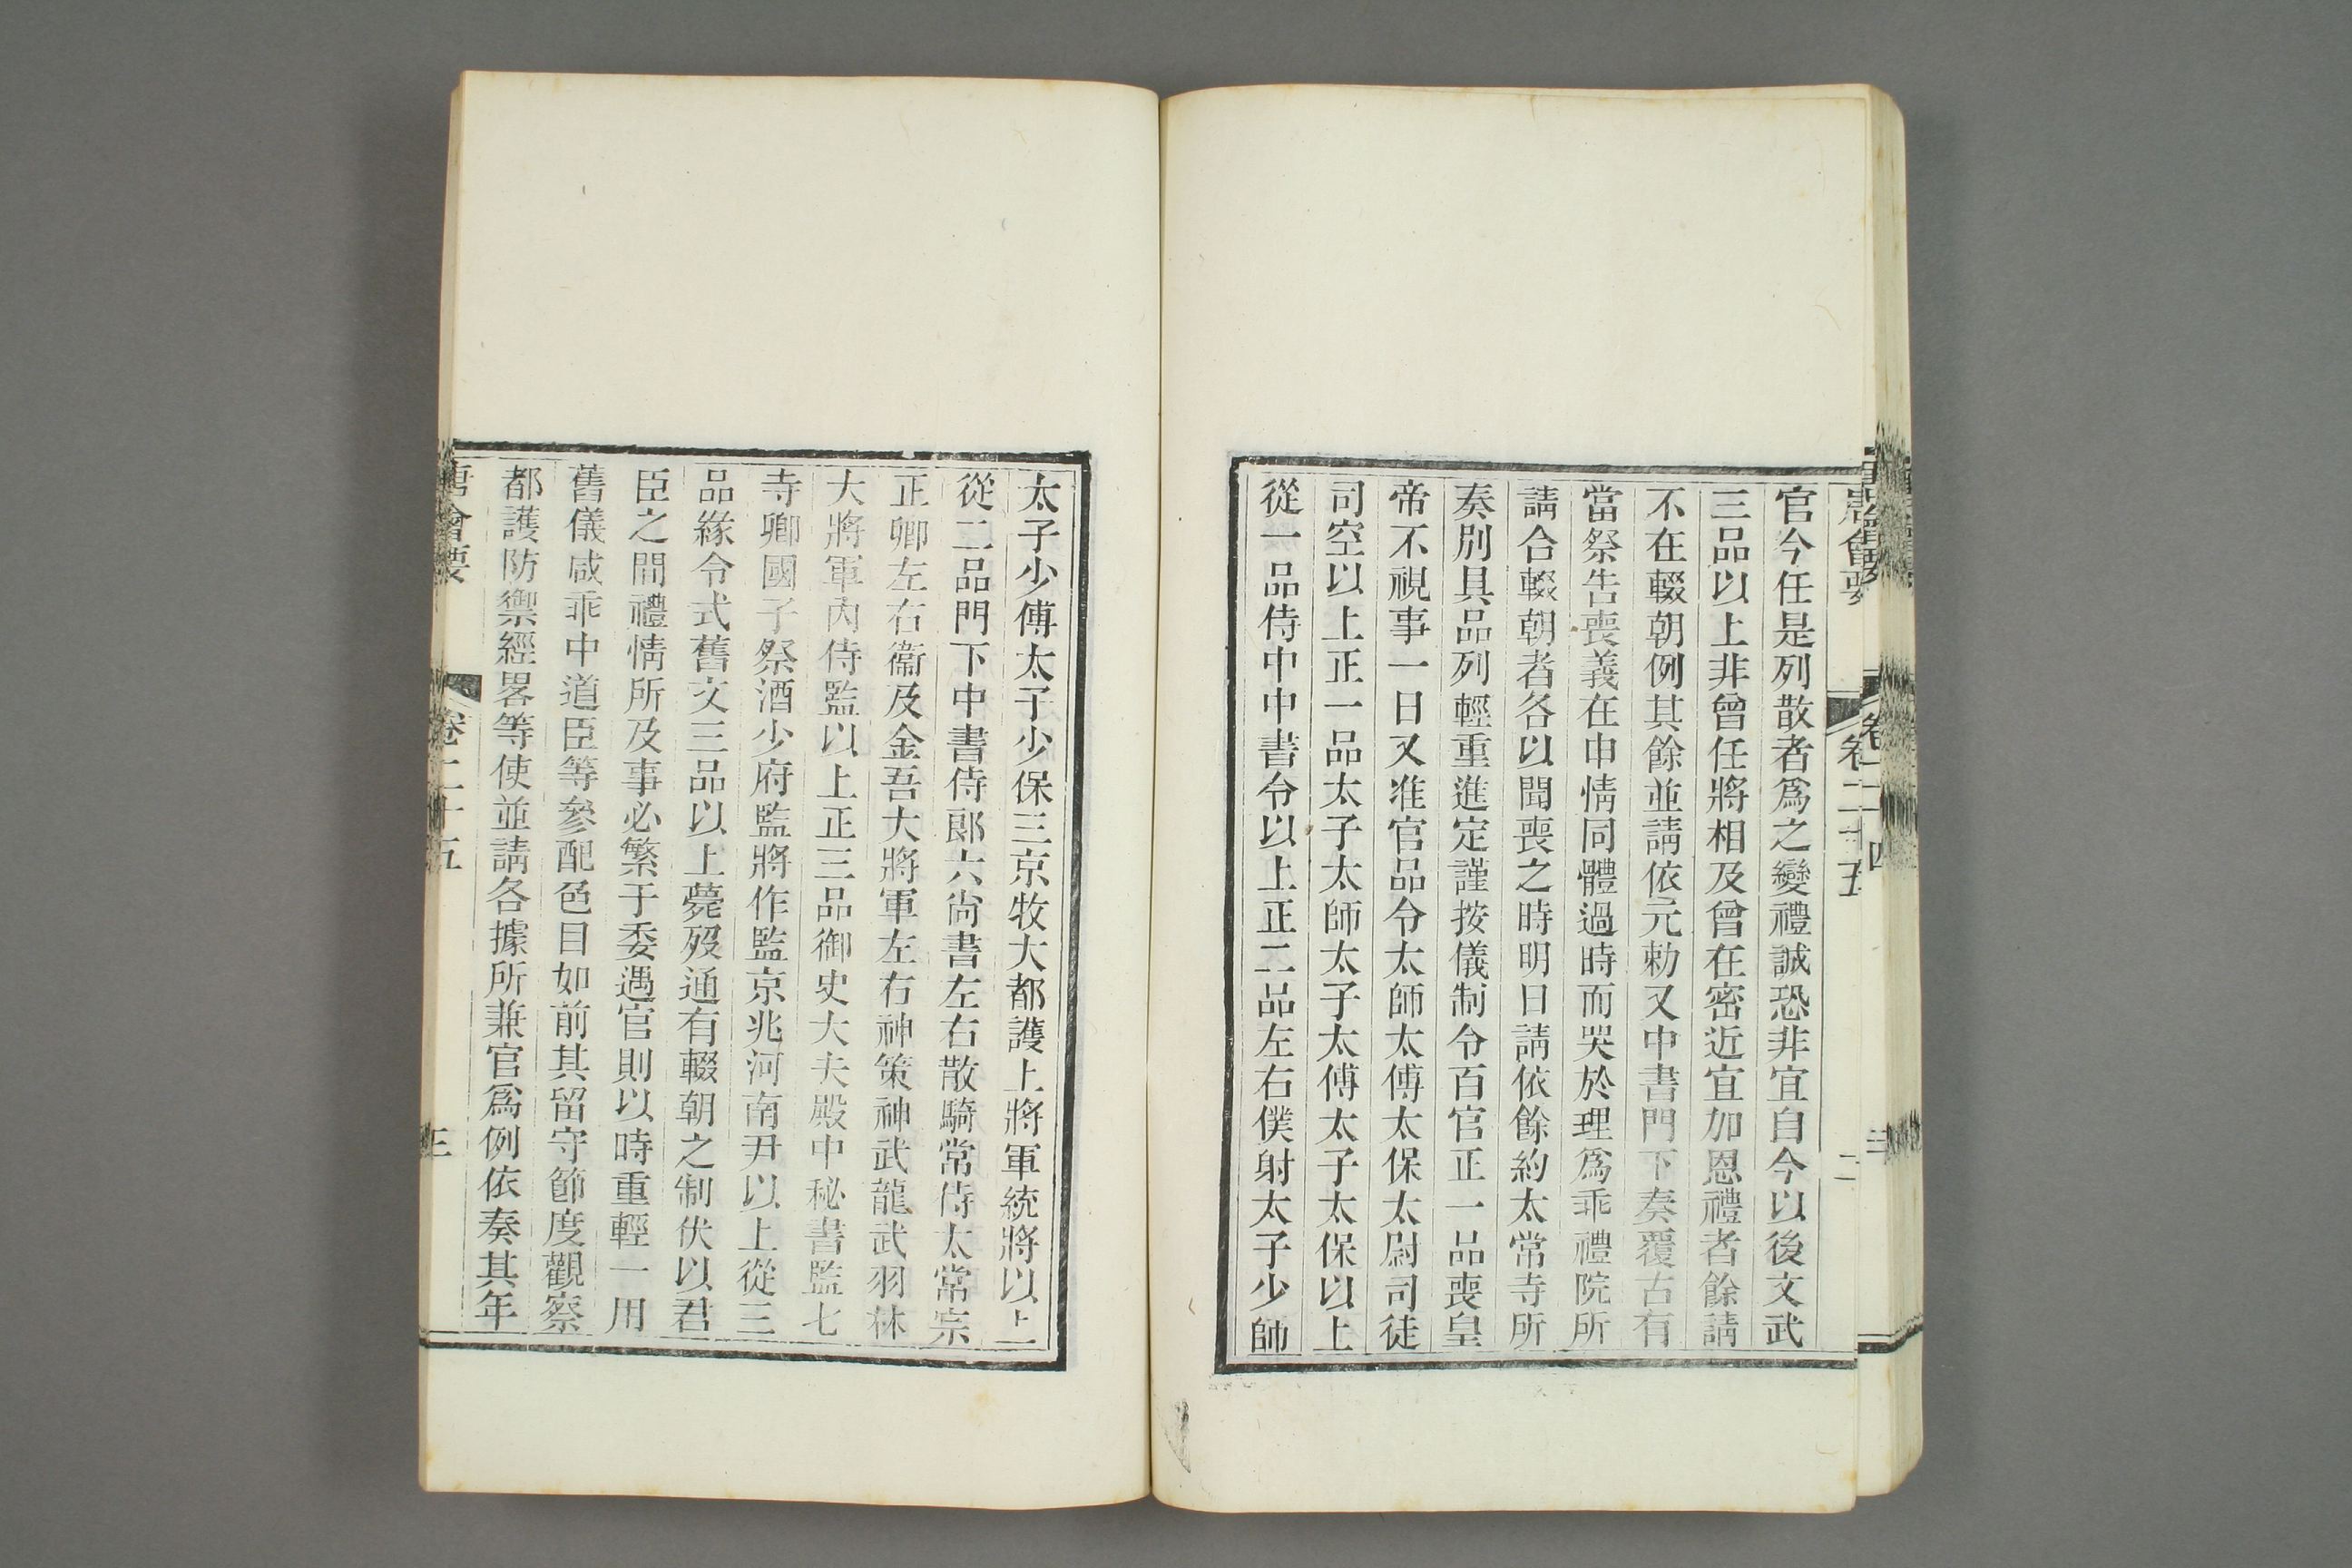 唐會要 卷二十五 二
官今任是列散者爲之變禮誠恐非宜自今以後文武
三品以上非曾任將相及曾在密近宜加恩禮者餘請
不在輟朝例其餘並請依元勅又中書門下奏覆古有
當祭告喪義在申情同體過時而哭於理爲乖禮院所
請合輟朝者各以聞喪之時明日請依餘約太常寺所
奏別具品列輕重進定謹按儀制令百官正一品喪皇
帝不視事一日又准官品令太師太傅太保太尉司徒
司空以上正一品太子太師太子太傅太子太保以上
從一品侍中中書令以上正二品左右僕射太子少師
太子少傅太子少保三京牧大都護上將軍統將以上
從二品門下中書侍郎六尚書左右散騎常侍太常宗
正卿左右衞及金吾大將軍左右神策神武龍武羽林
大將軍內侍監以上正三品御史大夫殿中秘書監七
寺卿國子祭酒少府監將作監京兆河南尹以上從三
品緣令式舊文三品以上薨歿通有輟朝之制伏以君
臣之間禮情所及事必繁于委遇官則以時重輕一用
舊儀咸乖中道臣等參配色目如前其留守節度觀察
都護防禦經畧等使並請各據所兼官爲例依奏其年
唐會要 卷二十五 三